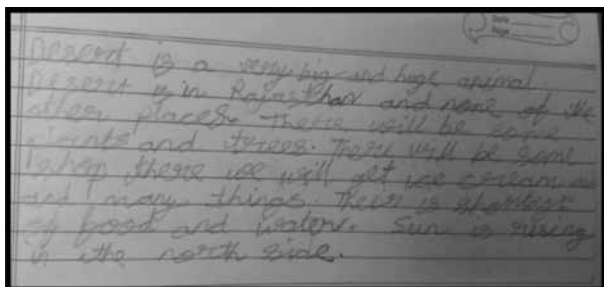 Date
Page
Desert is a very big and huge animal.
Desert is in Rajasthan and none of the
other places. There will be some
plants and trees. There will be some
shop there we will get ice cream
and many things. Their is shortage
of food and water. Sun is rising
in the north side.